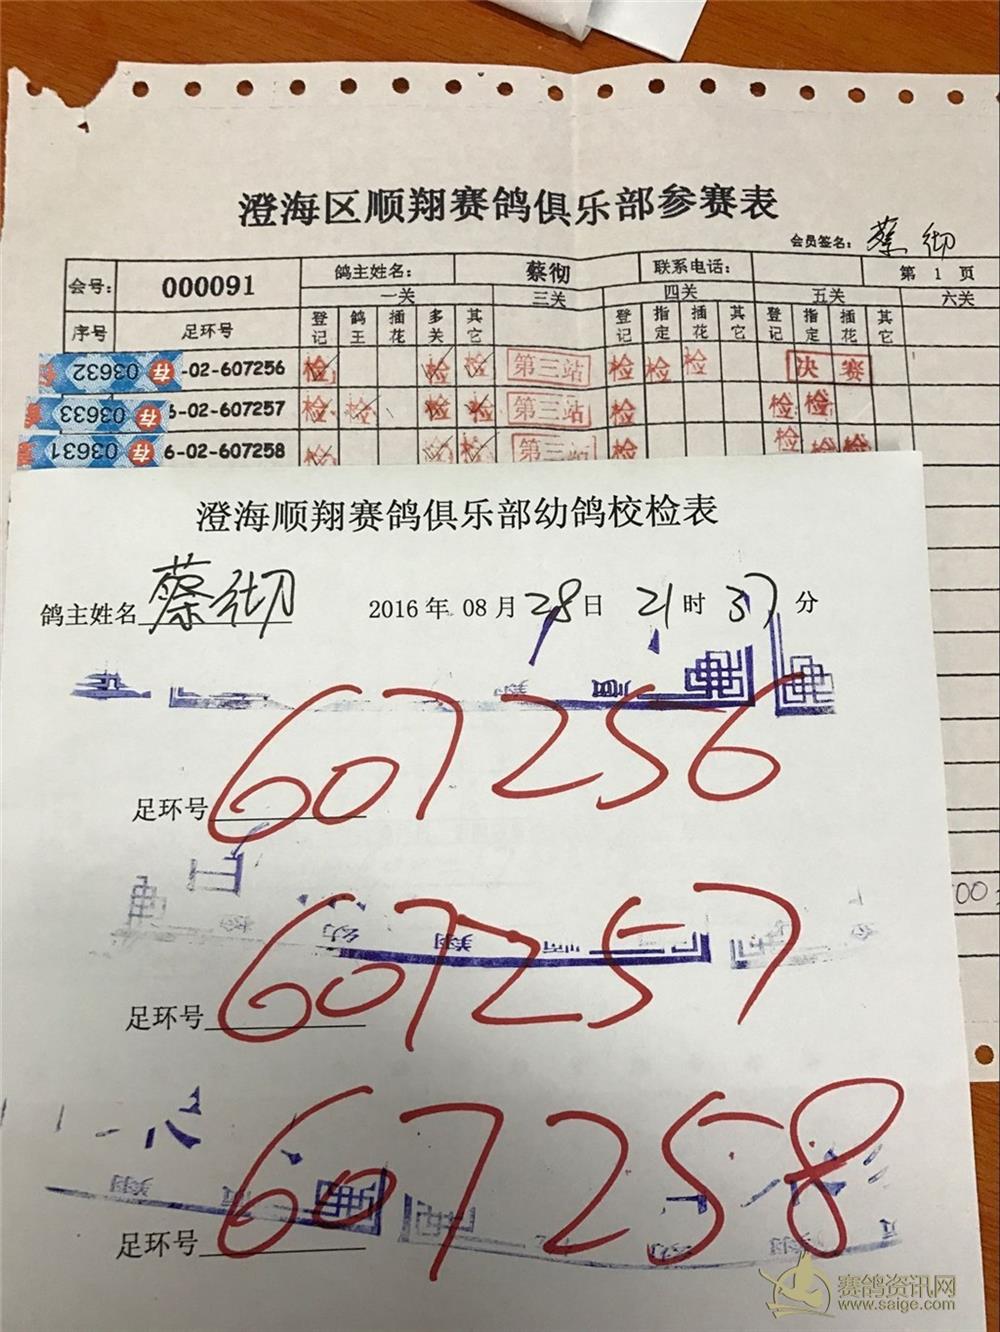 澄海区顺翔赛鸽俱乐部参赛表
会员签名: 蔡彻
会号: 000091 鸽主姓名: 蔡彻 联系电话: 第 1 页
一关 三关 四关 五关 六关
序号 足环号 登记 鸽王 插花 多关 其它 登记 指定 插花 其它 登记 指定 插花 其它
03632 存 -02-607256 检 检 检 第三站 检 检 检 决赛
03633 存 6-02-607257 检 检 检 检 第三站 检 检 检
03631 存 6-02-607258 检 检 检 第三站 检 检 检 检
澄海顺翔赛鸽俱乐部幼鸽校检表
鸽主姓名 蔡彻 2016 年 08 月 28 日 21 时 37 分
足环号 607256
足环号 607257
足环号 607258
赛鸽资讯网
www.saige.com